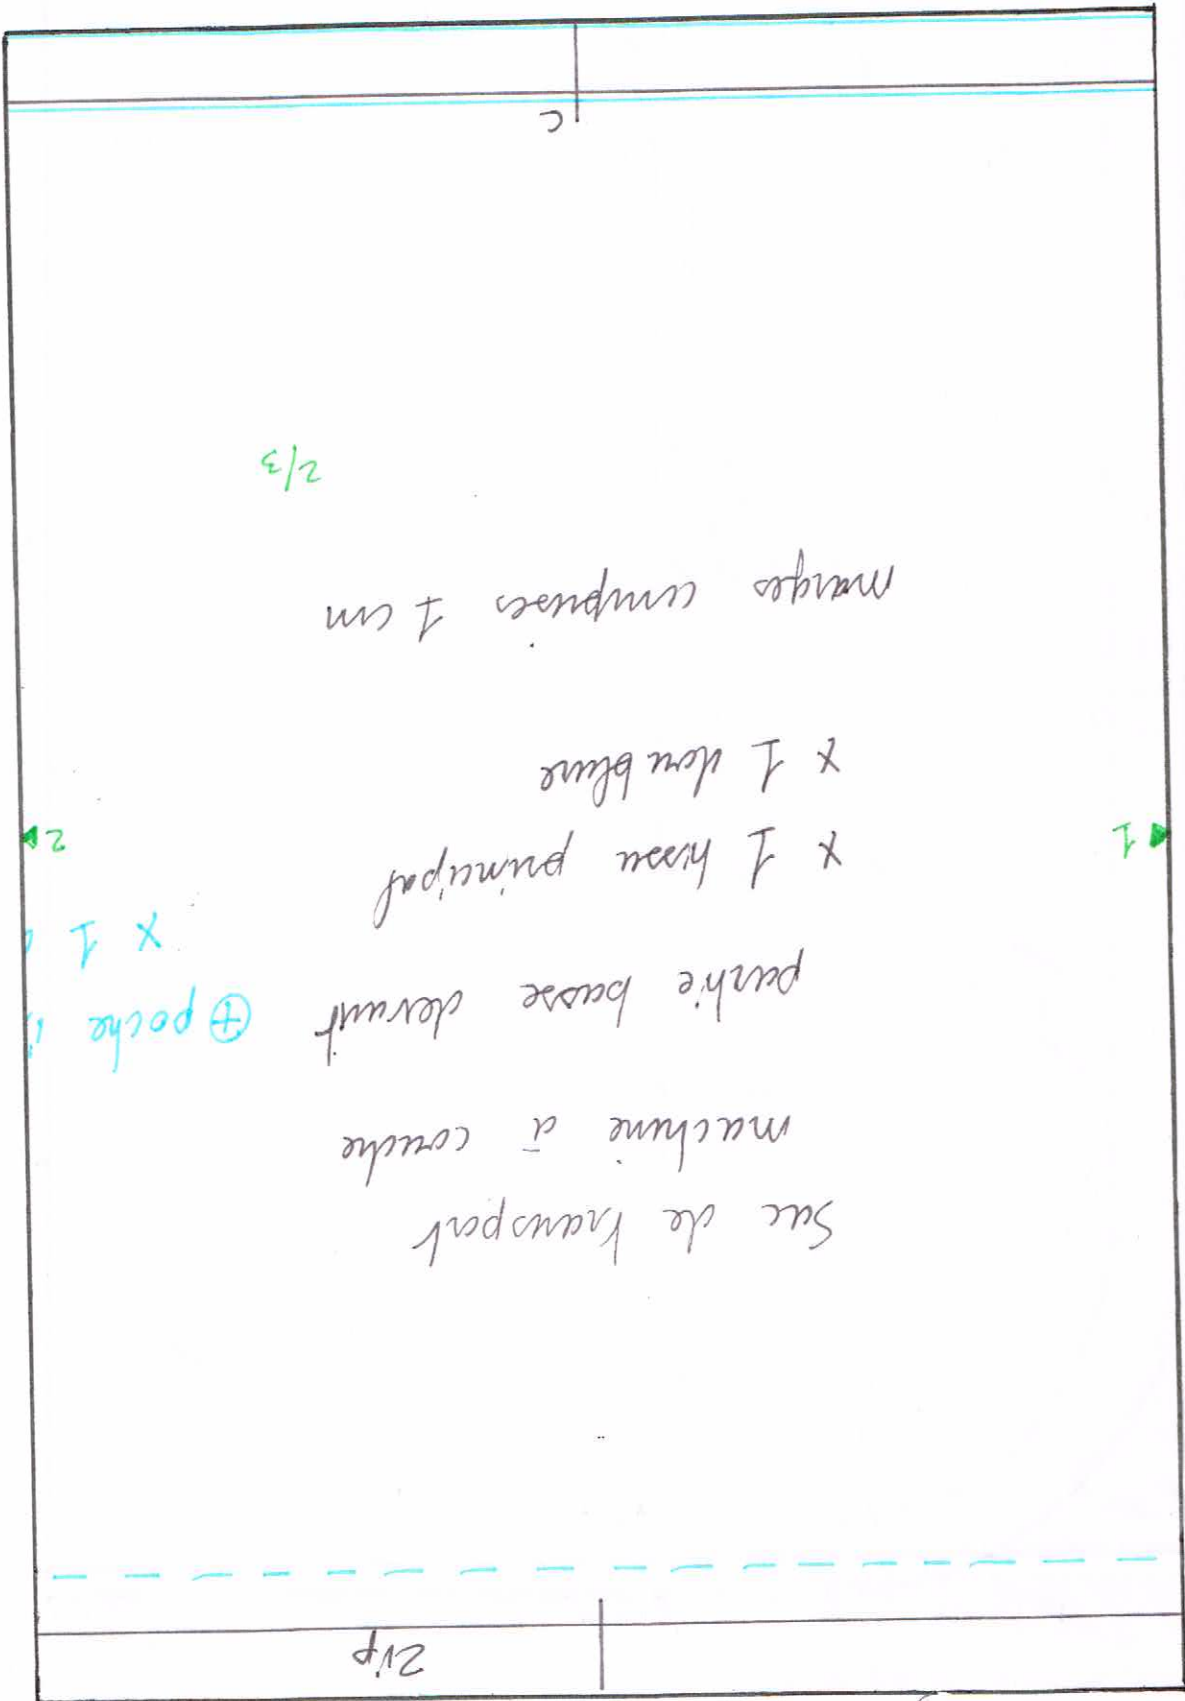 Zip
Sac de transport
machine à coudre
partie basse devant
⊕ poche
x 1 tissu principal
x 1
x 1 doublure
1
2
marges comprises 1 cm
2/3
C